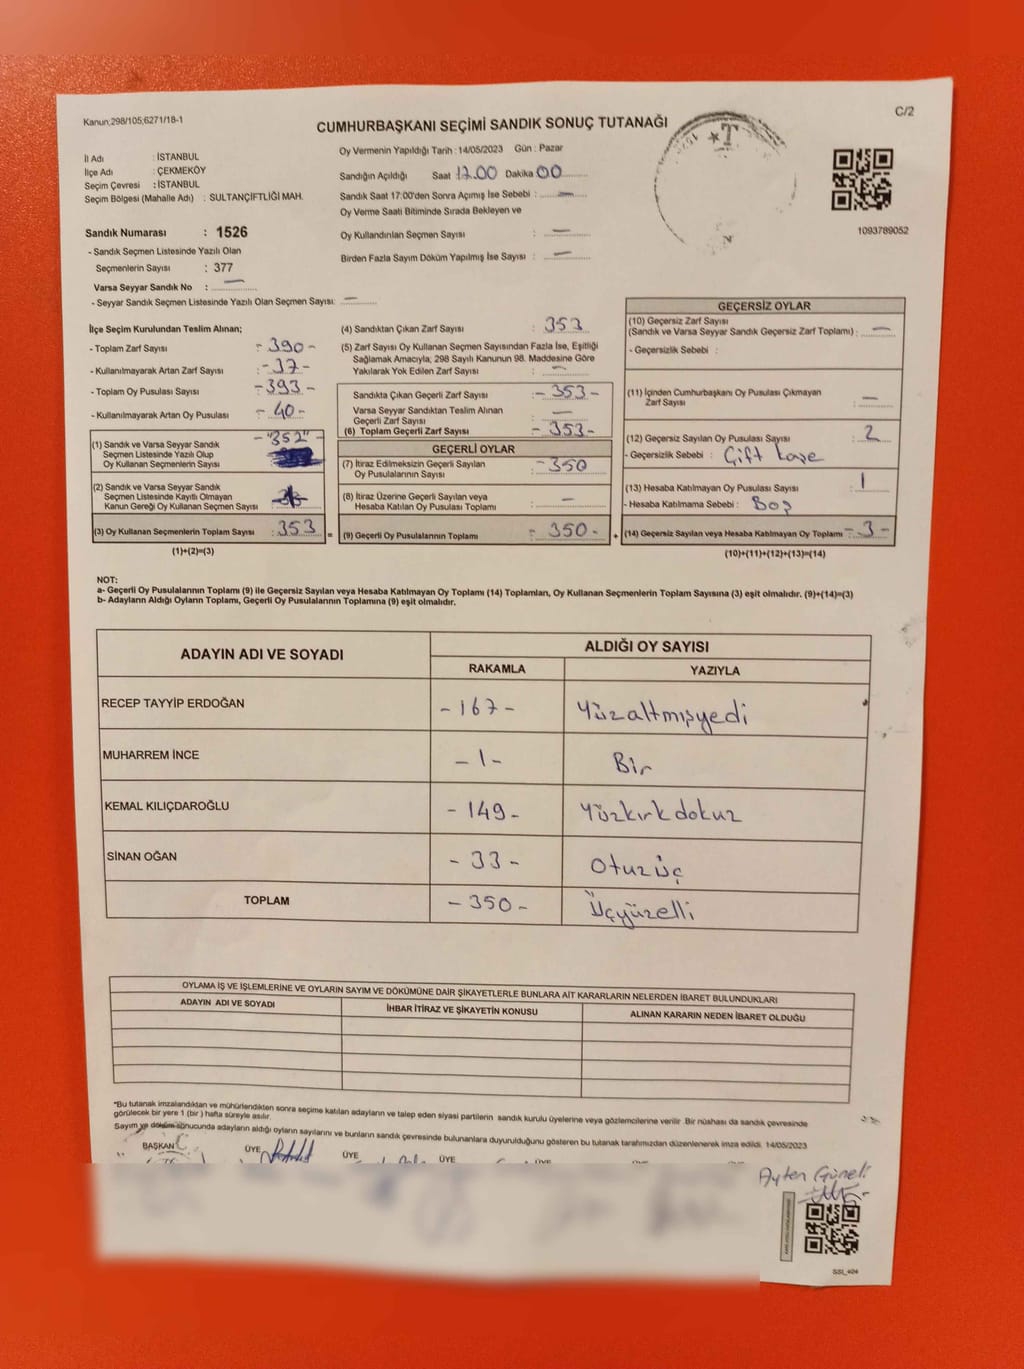 Kanun;298/105;6271/18-1
C/2
CUMHURBAŞKANI SEÇİMİ SANDIK SONUÇ TUTANAĞI
İl Adı : İSTANBUL
İlçe Adı : ÇEKMEKÖY
Seçim Çevresi : İSTANBUL
Seçim Bölgesi (Mahalle Adı) : SULTANÇİFTLİĞİ MAH.
Sandık Numarası : 1526
- Sandık Seçmen Listesinde Yazılı Olan
Seçmenlerin Sayısı : 377
Varsa Seyyar Sandık No : —
- Seyyar Sandık Seçmen Listesinde Yazılı Olan Seçmen Sayısı: —
Oy Vermenin Yapıldığı Tarih : 14/05/2023 Gün : Pazar
Sandığın Açıldığı Saat 17.00 Dakika 00
Sandık Saat 17:00'den Sonra Açımış İse Sebebi : —
Oy Verme Saati Bitiminde Sırada Bekleyen ve
Oy Kullandırılan Seçmen Sayısı : —
Birden Fazla Sayım Döküm Yapılmış İse Sayısı : —
1093789052
İlçe Seçim Kurulundan Teslim Alınan;
- Toplam Zarf Sayısı : - 390 -
- Kullanılmayarak Artan Zarf Sayısı : - 37 -
- Toplam Oy Pusulası Sayısı : - 393 -
- Kullanılmayarak Artan Oy Pusulası : - 40 -
(1) Sandık ve Varsa Seyyar Sandık
Seçmen Listesinde Yazılı Olup
Oy Kullanan Seçmenlerin Sayısı - "352" -
(2) Sandık ve Varsa Seyyar Sandık
Seçmen Listesinde Kayıtlı Olmayan
Kanun Gereği Oy Kullanan Seçmen Sayısı :
(3) Oy Kullanan Seçmenlerin Toplam Sayısı : 353
(1)+(2)=(3)
(4) Sandıktan Çıkan Zarf Sayısı : 353
(5) Zarf Sayısı Oy Kullanan Seçmen Sayısından Fazla İse, Eşitliği
Sağlamak Amacıyla; 298 Sayılı Kanunun 98. Maddesine Göre
Yakılarak Yok Edilen Zarf Sayısı : —
Sandıkta Çıkan Geçerli Zarf Sayısı : - 353 -
Varsa Seyyar Sandıktan Teslim Alınan
Geçerli Zarf Sayısı : —
(6) Toplam Geçerli Zarf Sayısı : - 353 -
GEÇERLİ OYLAR
(7) İtiraz Edilmeksizin Geçerli Sayılan
Oy Pusulalarının Sayısı : - 350
(8) İtiraz Üzerine Geçerli Sayılan veya
Hesaba Katılan Oy Pusulası Toplamı : —
= (9) Geçerli Oy Pusulalarının Toplamı : - 350 -
GEÇERSİZ OYLAR
(10) Geçersiz Zarf Sayısı
(Sandık ve Varsa Seyyar Sandık Geçersiz Zarf Toplamı) : —
- Geçersizlik Sebebi :
(11) İçinden Cumhurbaşkanı Oy Pusulası Çıkmayan
Zarf Sayısı : —
(12) Geçersiz Sayılan Oy Pusulası Sayısı : 2
- Geçersizlik Sebebi : Çift kaşe
(13) Hesaba Katılmayan Oy Pusulası Sayısı : 1
- Hesaba Katılmama Sebebi : Boş
+ (14) Geçersiz Sayılan veya Hesaba Katılmayan Oy Toplamı : - 3 -
(10)+(11)+(12)+(13)=(14)
NOT:
a- Geçerli Oy Pusulalarının Toplamı (9) ile Geçersiz Sayılan veya Hesaba Katılmayan Oy Toplamı (14) Toplamları, Oy Kullanan Seçmenlerin Toplam Sayısına (3) eşit olmalıdır. (9)+(14)=(3)
b- Adayların Aldığı Oyların Toplamı, Geçerli Oy Pusulalarının Toplamına (9) eşit olmalıdır.
ADAYIN ADI VE SOYADI ALDIĞI OY SAYISI
RAKAMLA YAZIYLA
RECEP TAYYİP ERDOĞAN - 167 - Yüzaltmışyedi
MUHARREM İNCE - 1 - Bir
KEMAL KILIÇDAROĞLU - 149 - Yüzkırkdokuz
SİNAN OĞAN - 33 - Otuzüç
TOPLAM - 350 - Üçyüzelli
OYLAMA İŞ VE İŞLEMLERİNE VE OYLARIN SAYIM VE DÖKÜMÜNE DAİR ŞİKAYETLERLE BUNLARA AİT KARARLARIN NELERDEN İBARET BULUNDUKLARI
ADAYIN ADI VE SOYADI İHBAR İTİRAZ VE ŞİKAYETİN KONUSU ALINAN KARARIN NEDEN İBARET OLDUĞU
*Bu tutanak imzalandıktan ve mühürlendikten sonra seçime katılan adayların ve talep eden siyasi partilerin sandık kurulu üyelerine veya gözlemcilerine verilir. Bir nüshası da sandık çevresinde
görülecek bir yere 1 (bir ) hafta süreyle asılır.
Sayım ve döküm sonucunda adayların aldığı oyların sayılarını ve bunların sandık çevresinde bulunanlara duyurulduğunu gösteren bu tutanak tarafımızdan düzenlenerek imza edildi. 14/05/2023
BAŞKAN ÜYE ÜYE ÜYE ÜYE
Ayten Günel
SSI_404